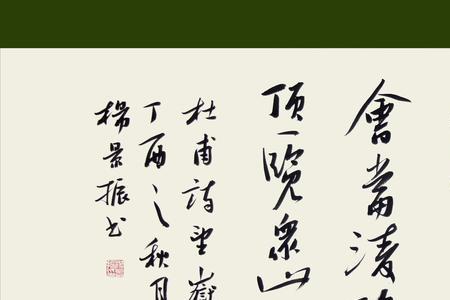 會當凌
頂一覽衆山
杜甫詩望嶽
丁酉之秋月
楊景振书